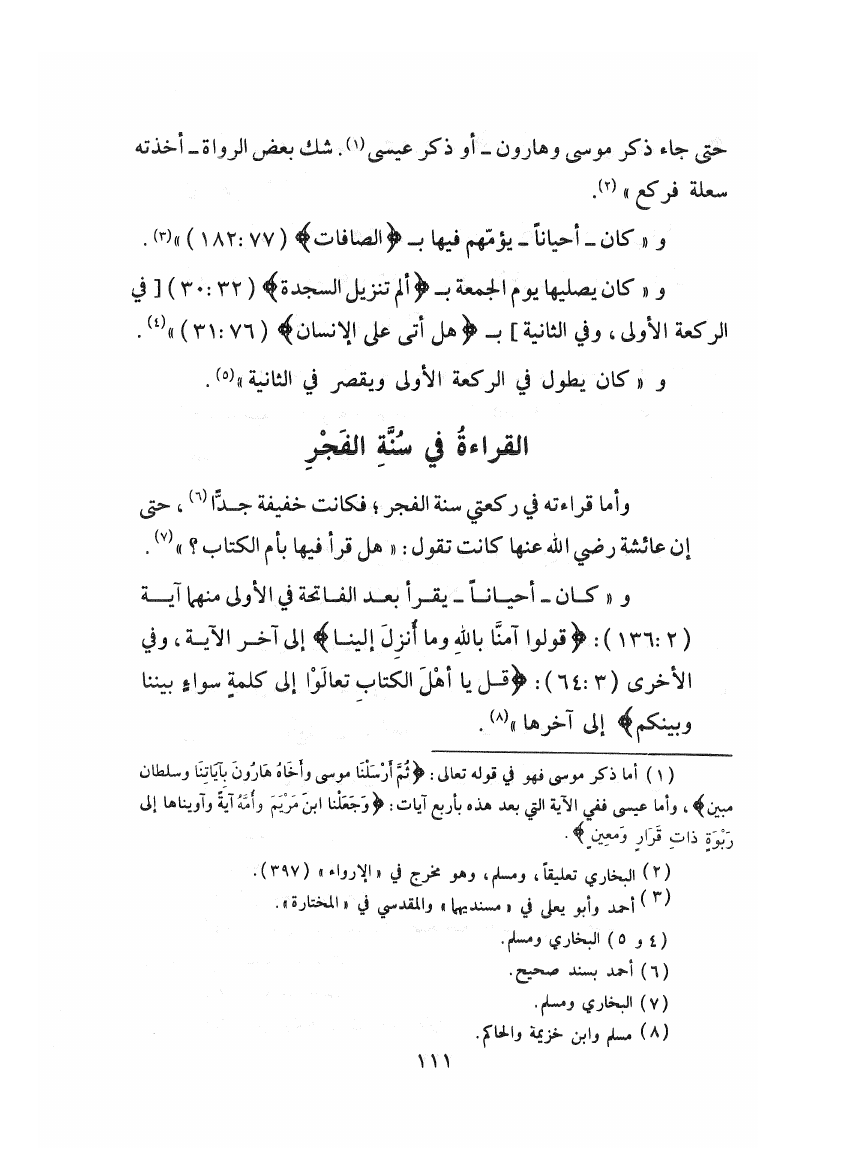 حتى جاء ذكر موسى وهارون ـ أو ذكر عيسى(١). شك بعض الرواة ـ أخذته
سعلة فركع » (٢).
و « كان ـ أحياناً ـ يؤمّهم فيها بـ ﴿الصافات﴾ ( ٧٧ : ١٨٢ ) »(٣) .
و « كان يصليها يوم الجمعة بـ ﴿ألم تنزيل السجدة﴾ ( ٣٢ : ٣٠ ) [ في
الركعة الأولى ، وفي الثانية ] بـ ﴿هل أتى على الإنسان﴾ ( ٧٦ : ٣١ ) »(٤) .
و « كان يطول في الركعة الأولى ويقصر في الثانية »(٥) .
القراءةُ في سُنَّةِ الفَجْرِ
وأما قراءته في ركعتي سنة الفجر ؛ فكانت خفيفة جـدًّا(٦) ، حتى
إن عائشة رضي الله عنها كانت تقول : « هل قرأ فيها بأم الكتاب ؟ »(٧) .
و « كـان ـ أحيـانـاً ـ يقـرأ بعـد الفـاتحة في الأولى منهما آيـة
( ٢ : ١٣٦ ) : ﴿قولوا آمنَّا باللهِ وما أُنزِلَ إلينـا﴾ إلى آخـر الآيـة ، وفي
الأخرى ( ٣ : ٦٤ ) : ﴿قـل يا أهْلَ الكتابِ تعالَوْا إلى كلمةٍ سواءٍ بيننا
وبينكم﴾ إلى آخرها »(٨) .
( ١ ) أما ذكر موسى فهو في قوله تعالى : ﴿ثُمَّ أَرْسَلْنَا موسى وأَخَاهُ هَارُونَ بِآيَاتِنَا وسلطان
مبين﴾ ، وأما عيسى ففي الآية التي بعد هذه بأربع آيات : ﴿وَجَعَلْنا ابنَ مَرْيَمَ وأُمَّهُ آيةً وآويناها إلى
رَبْوَةٍ ذاتِ قَرَارٍ وَمعِينٍ﴾ .
( ٢ ) البخاري تعليقاً ، ومسلم ، وهو مخرج في « الإرواء » ( ٣٩٧ ) .
( ٣ ) أحمد وأبو يعلى في « مسنديهما » والمقدسي في « المختارة » .
( ٤ و ٥ ) البخاري ومسلم .
( ٦ ) أحمد بسند صحيح .
( ٧ ) البخاري ومسلم .
( ٨ ) مسلم وابن خزيمة والحاكم .
١١١